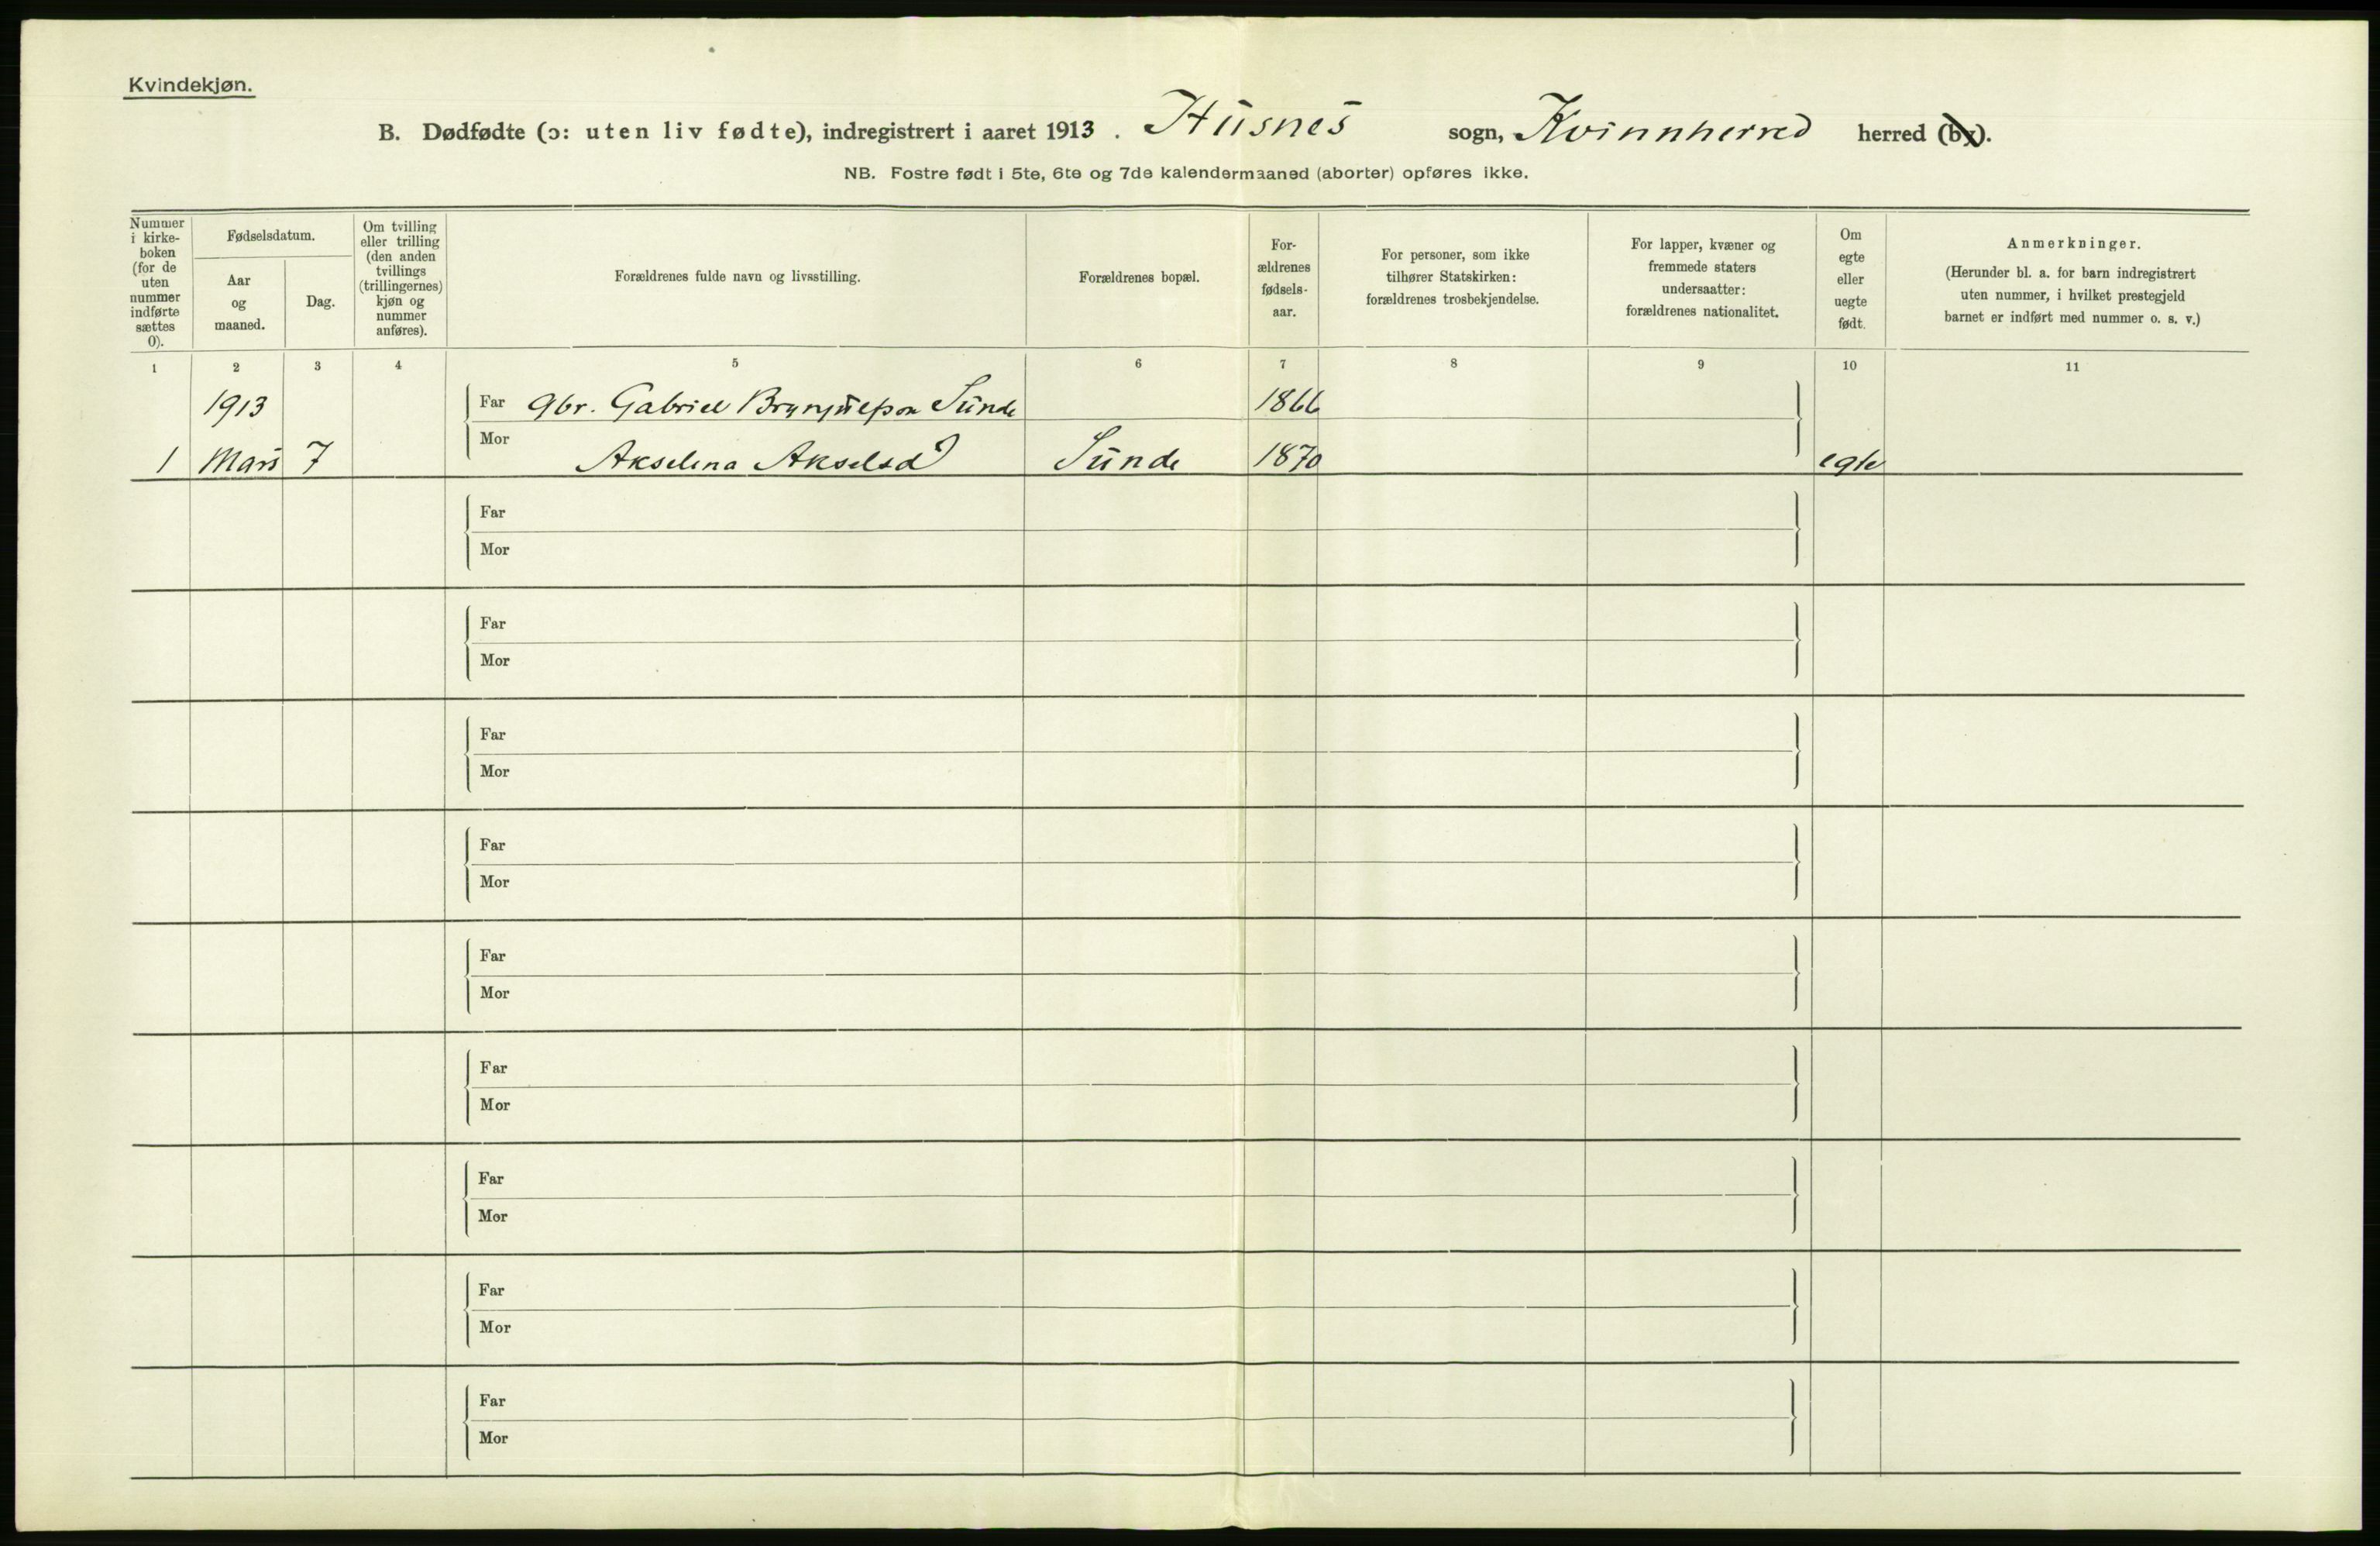 Kvindekjøn.
B. Dødfødte (ɔ: uten liv fødte), indregistrert i aaret 1913. Husnes sogn, Kvinnherred herred (by).
NB. Fostre født i 5te, 6te og 7de kalendermaaned (aborter) opføres ikke.
Nummer
i kirke-
boken
(for de
uten
nummer
indførte
sættes
0).
Fødselsdatum.
Aar
og
maaned.
Dag.
Om tvilling
eller trilling
(den anden
tvillings
(trillingernes)
kjøn og
nummer
anføres).
Forældrenes fulde navn og livsstilling.
Forældrenes bopæl.
For-
ældrenes
fødsels-
aar.
For personer, som ikke
tilhører Statskirken:
forældrenes trosbekjendelse.
For lapper, kvæner og
fremmede staters
undersaatter:
forældrenes nationalitet.
Om
egte
eller
uegte
født.
Anmerkninger.
(Herunder bl. a. for barn indregistrert
uten nummer, i hvilket prestegjeld
barnet er indført med nummer o. s. v.)
1 2 3 4 5 6 7 8 9 10 11
1913 Far gbr. Gabriel Brynjulfson Sunde 1866
1 Mars 7 Mor Akselena Akselsd Sunde 1870 egte
Far
Mor
Far
Mor
Far
Mor
Far
Mor
Far
Mor
Far
Mor
Far
Mor
Far
Mor
Far
Mor